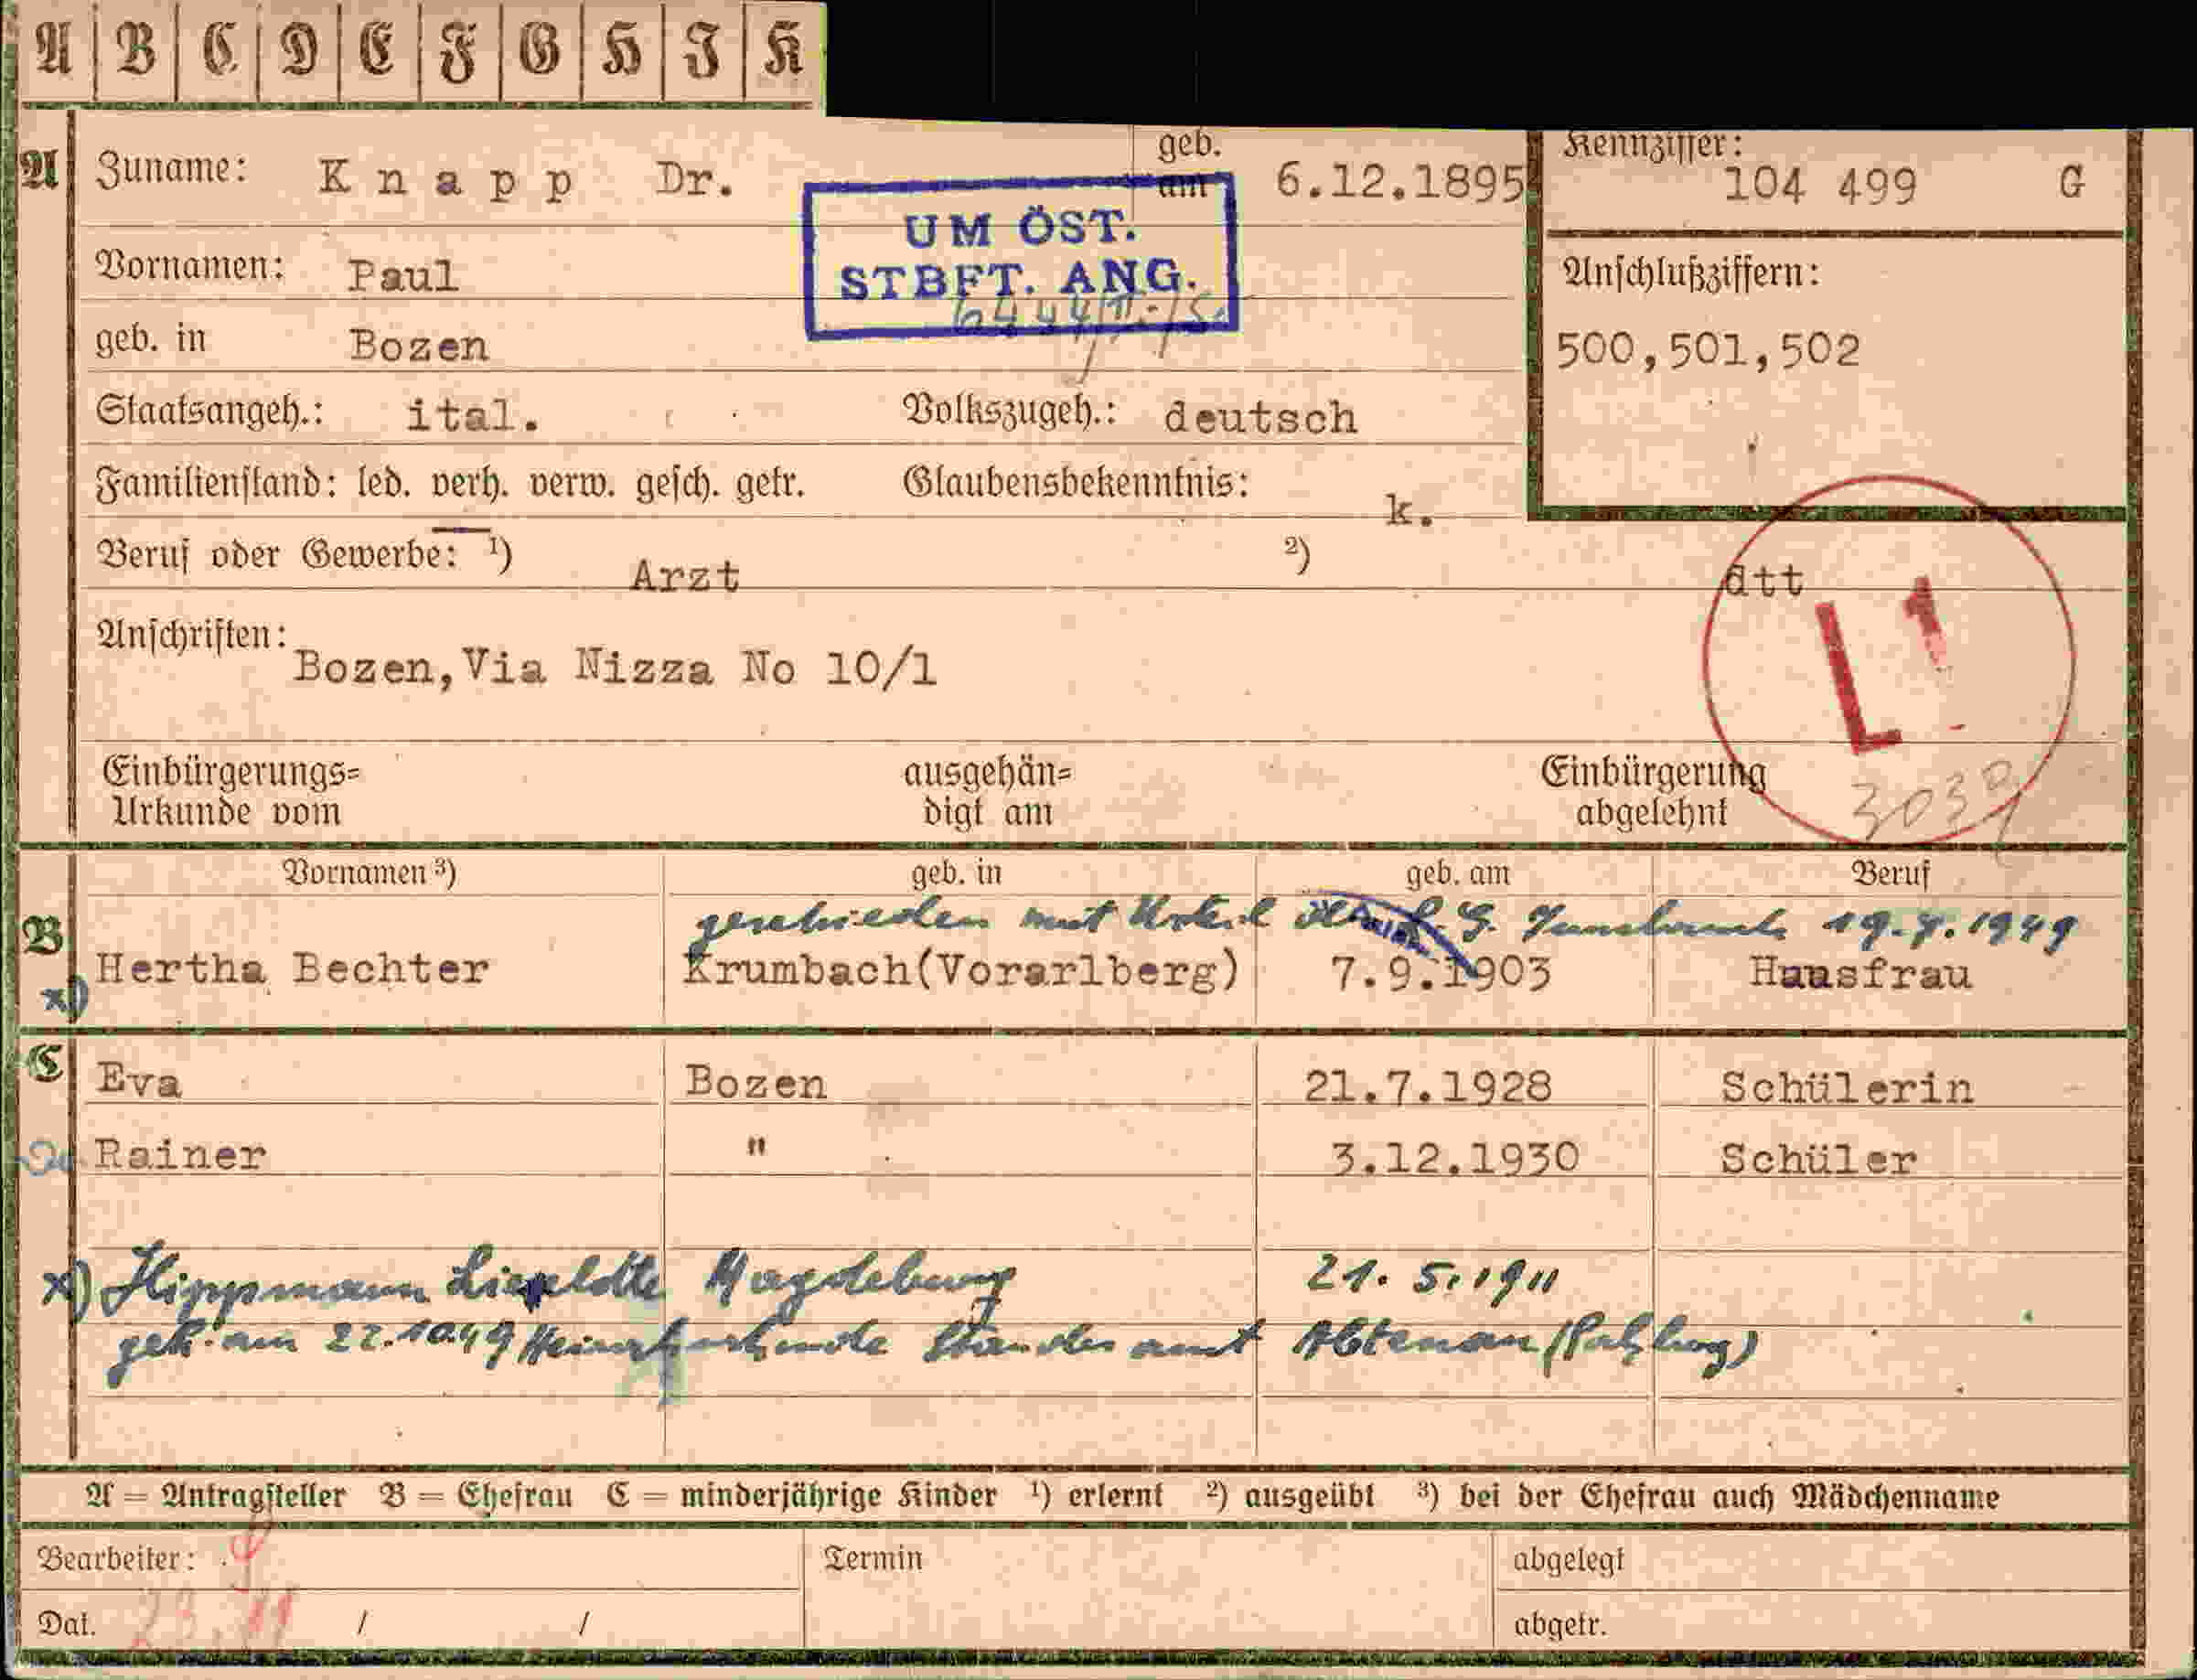 A B C D E F G H J K
A Zuname: Knapp Dr. geb. am 6.12.1895 Kennziffer: 104 499 G
UM ÖST.
STBFT. ANG.
Vornamen: Paul
Anschlußziffern:
geb. in Bozen
500,501,502
Staatsangeh.: ital. Volkszugeh.: deutsch
Familienstand: led. verh. verw. gesch. getr. Glaubensbekenntnis: k.
Beruf oder Gewerbe: ¹) Arzt ²) dtt
L 1
Anschriften: Bozen,Via Nizza No 10/1
Einbürgerungs= ausgehän= Einbürgerung
Urkunde vom digt am abgelehnt
3039
Vornamen ³) geb. in geb. am Beruf
geschieden mit Urteil L. G. Innsbruck 19.7.1949
B Hertha Bechter Krumbach(Vorarlberg) 7.9.1903 Hausfrau
x)
C Eva Bozen 21.7.1928 Schülerin
Rainer " 3.12.1930 Schüler
x) Hippmann Lieselotte Magdeburg 21. 5. 1911
geh. am 22.10.49 Heiratsurkunde Standesamt Abtenau (Salzburg)
A = Antragsteller B = Ehefrau C = minderjährige Kinder ¹) erlernt ²) ausgeübt ³) bei der Ehefrau auch Mädchenname
Bearbeiter: Termin abgelegt
Dat. 23. 11 / / abgetr.